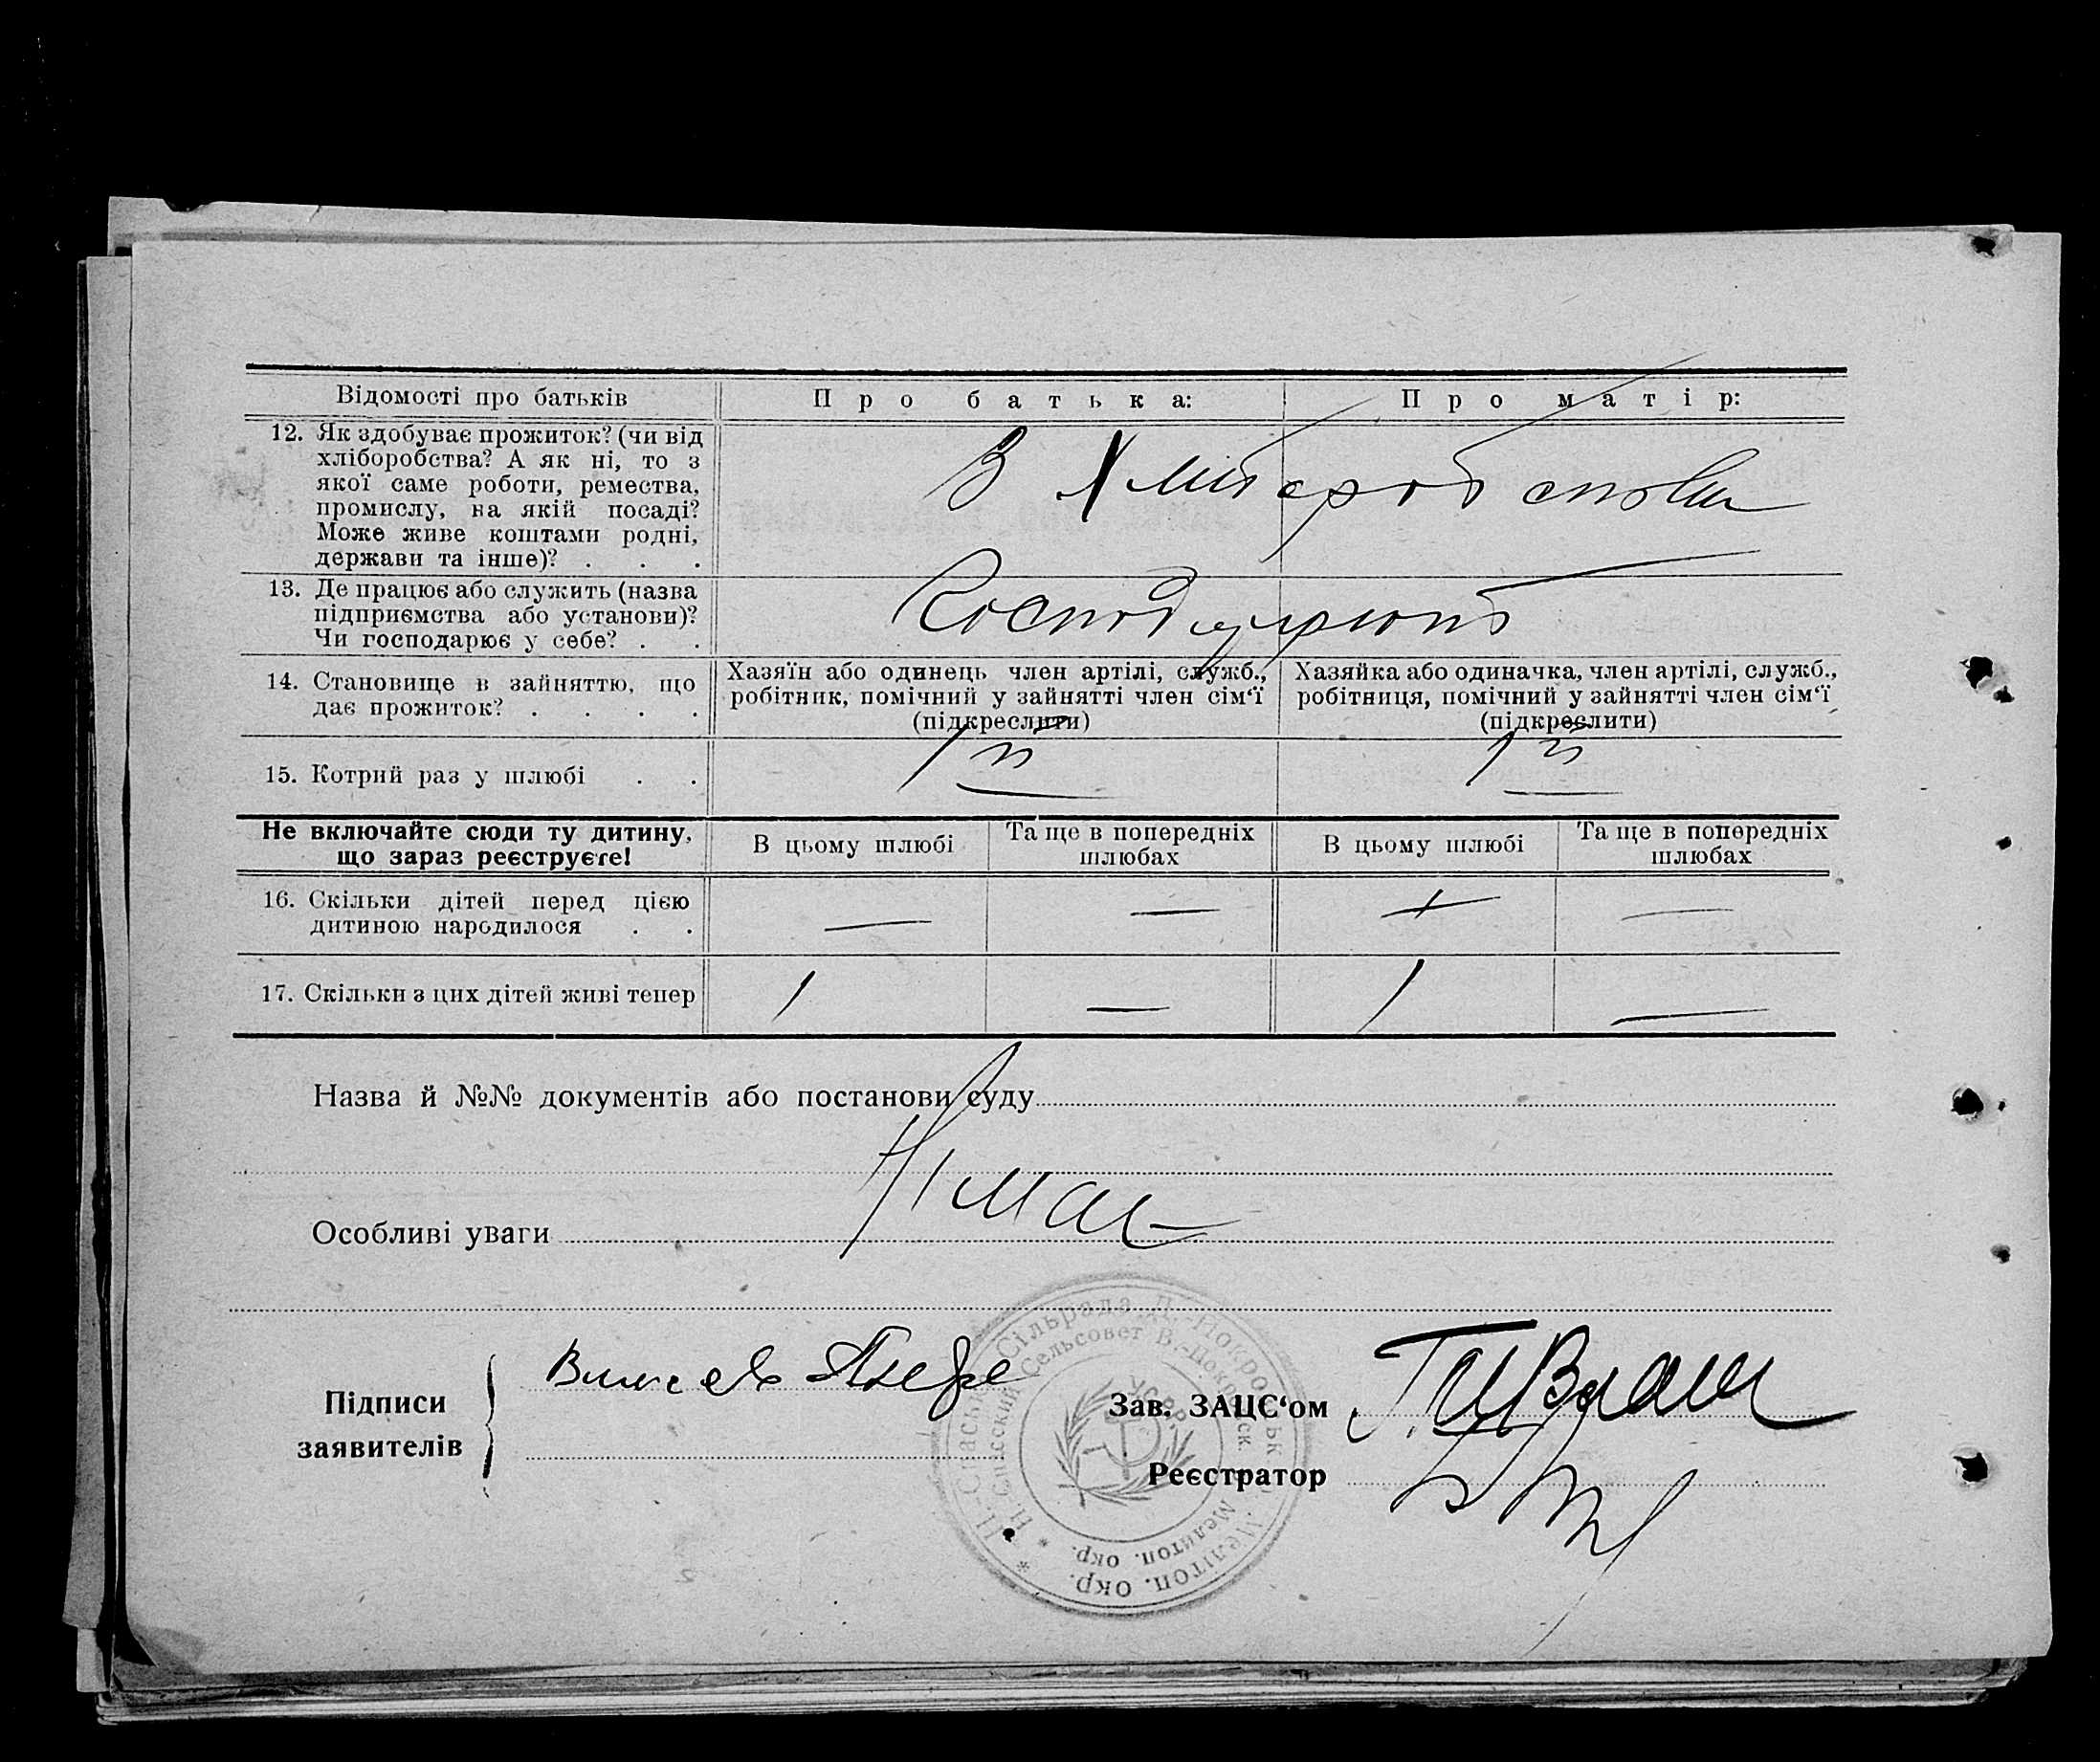 Відомості про батьків
Про батька:
Про матір:
12. Як здобуває прожиток? (чи від
хліборобства? А як ні, то з
якої саме роботи, ремества,
промислу, на якій посаді?
Може живе коштами родні,
держави та інше)? . . .
В
13. Де працює або служить (назва
підприємства або установи)?
Чи господарює у себе? . .
14. Становище в зайняттю, що
дає прожиток? . . . .
Хазяїн або одинець член артілі, служб.,
робітник, помічний у зайнятті член сім‘ї
(підкреслити)
Хазяйка або одиначка, член артілі, служб.,
робітниця, помічний у зайнятті член сім‘ї
(підкреслити)
15. Котрий раз у шлюбі . .
1й
1й
Не включайте сюди ту дитину,
що зараз реєструєте!
В цьому шлюбі
Та ще в попередніх
шлюбах
В цьому шлюбі
Та ще в попередніх
шлюбах
16. Скільки дітей перед цією
дитиною народилося . .
— — —
17. Скільки з цих дітей живі тепер
1 — 1 —
Назва й №№ документів або постанови суду
Німає
Особливі уваги
Підписи
заявителів
Зав. ЗАЦС‘ом
Реєстратор
Сільрада В.-Покровськ. Мелітоп. окр.
Н.Спасский Сельсовет В.-Покровск. Мелитоп. окр.
УСРР